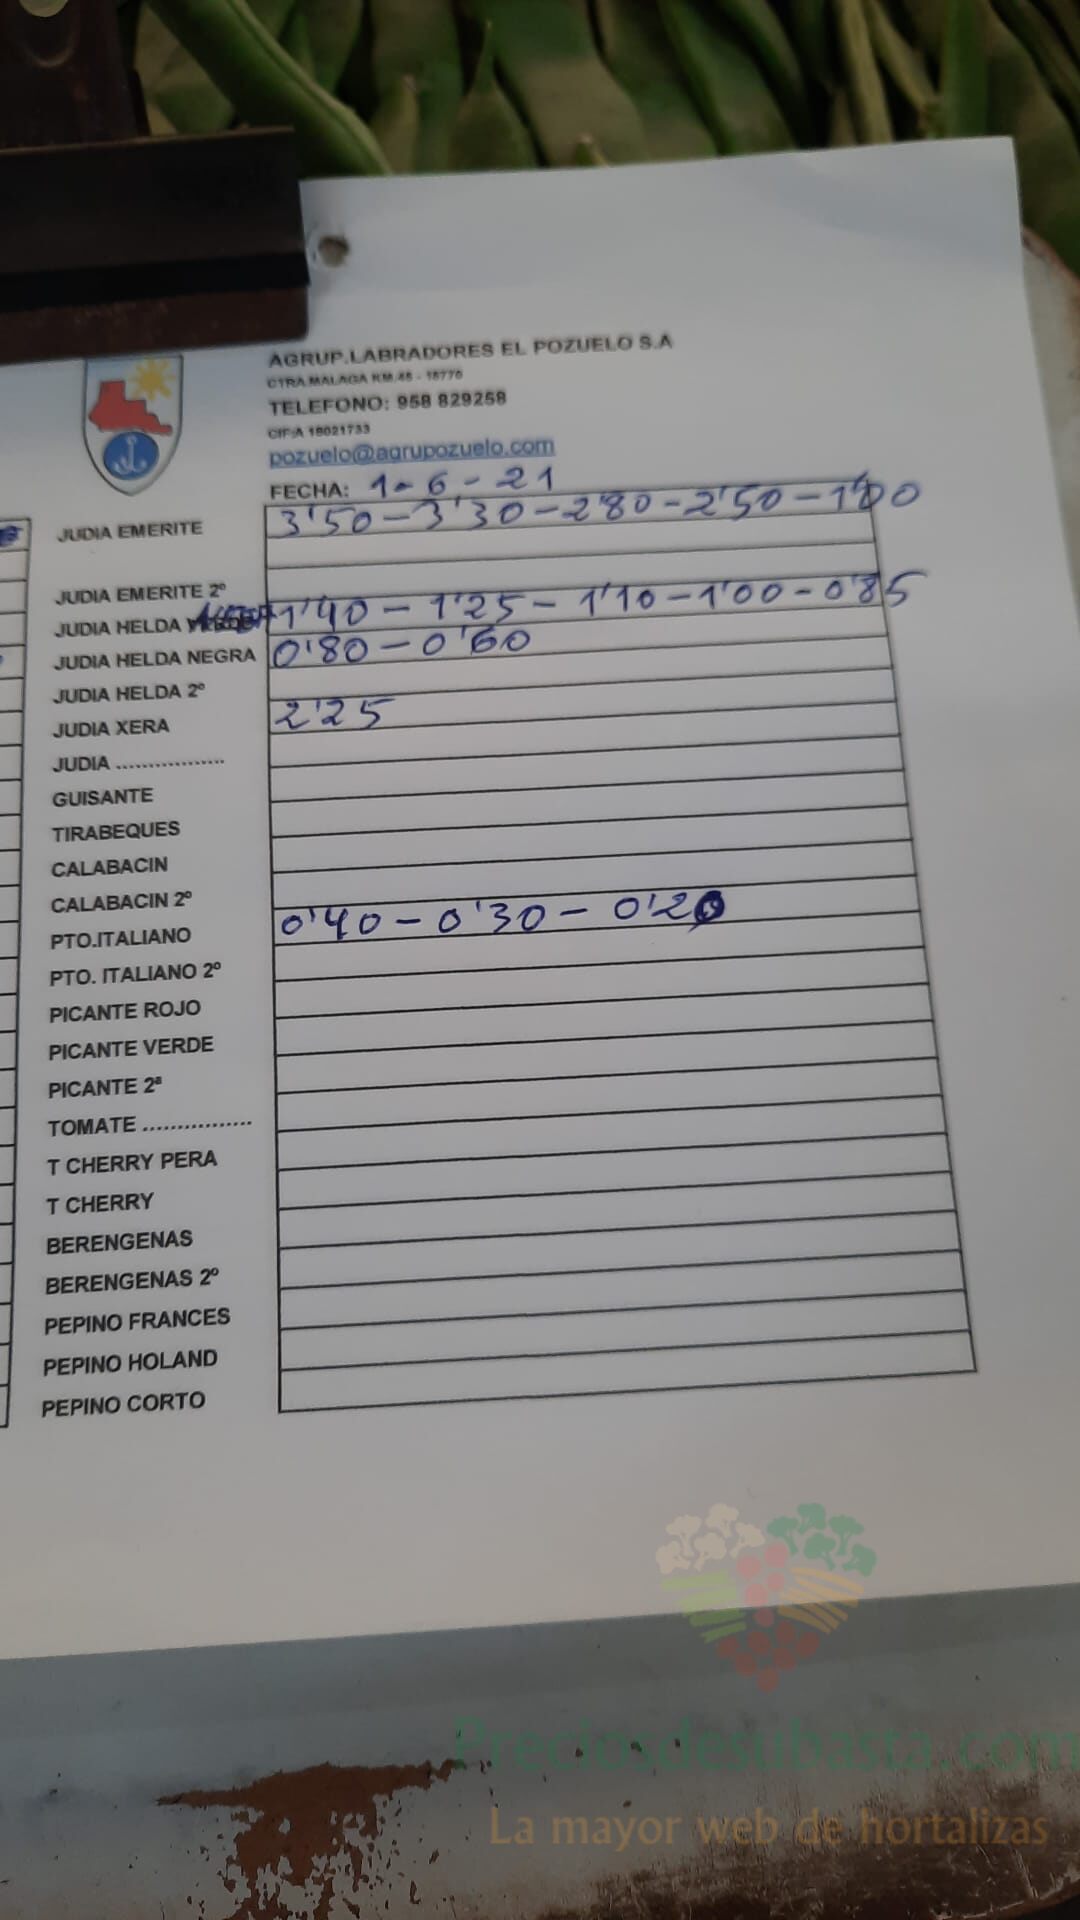 AGRUP.LABRADORES EL POZUELO S.A
CTRA.MALAGA KM.45 - 18770
TELEFONO: 958 829258
CIF:A 18021733
pozuelo@agrupozuelo.com
FECHA: 1-6-21
JUDIA EMERITE 3'50-3'30-2'80-2'50-1'00
JUDIA EMERITE 2º
JUDIA HELDA 1'40-1'25-1'10-1'00-0'85
JUDIA HELDA NEGRA 0'80-0'60
JUDIA HELDA 2º
JUDIA XERA 2'25
JUDIA .................
GUISANTE
TIRABEQUES
CALABACIN
CALABACIN 2º
PTO.ITALIANO 0'40-0'30-0'20
PTO. ITALIANO 2º
PICANTE ROJO
PICANTE VERDE
PICANTE 2ª
TOMATE ................
T CHERRY PERA
T CHERRY
BERENGENAS
BERENGENAS 2º
PEPINO FRANCES
PEPINO HOLAND
PEPINO CORTO
Preciosdesubasta.com
La mayor web de hortalizas